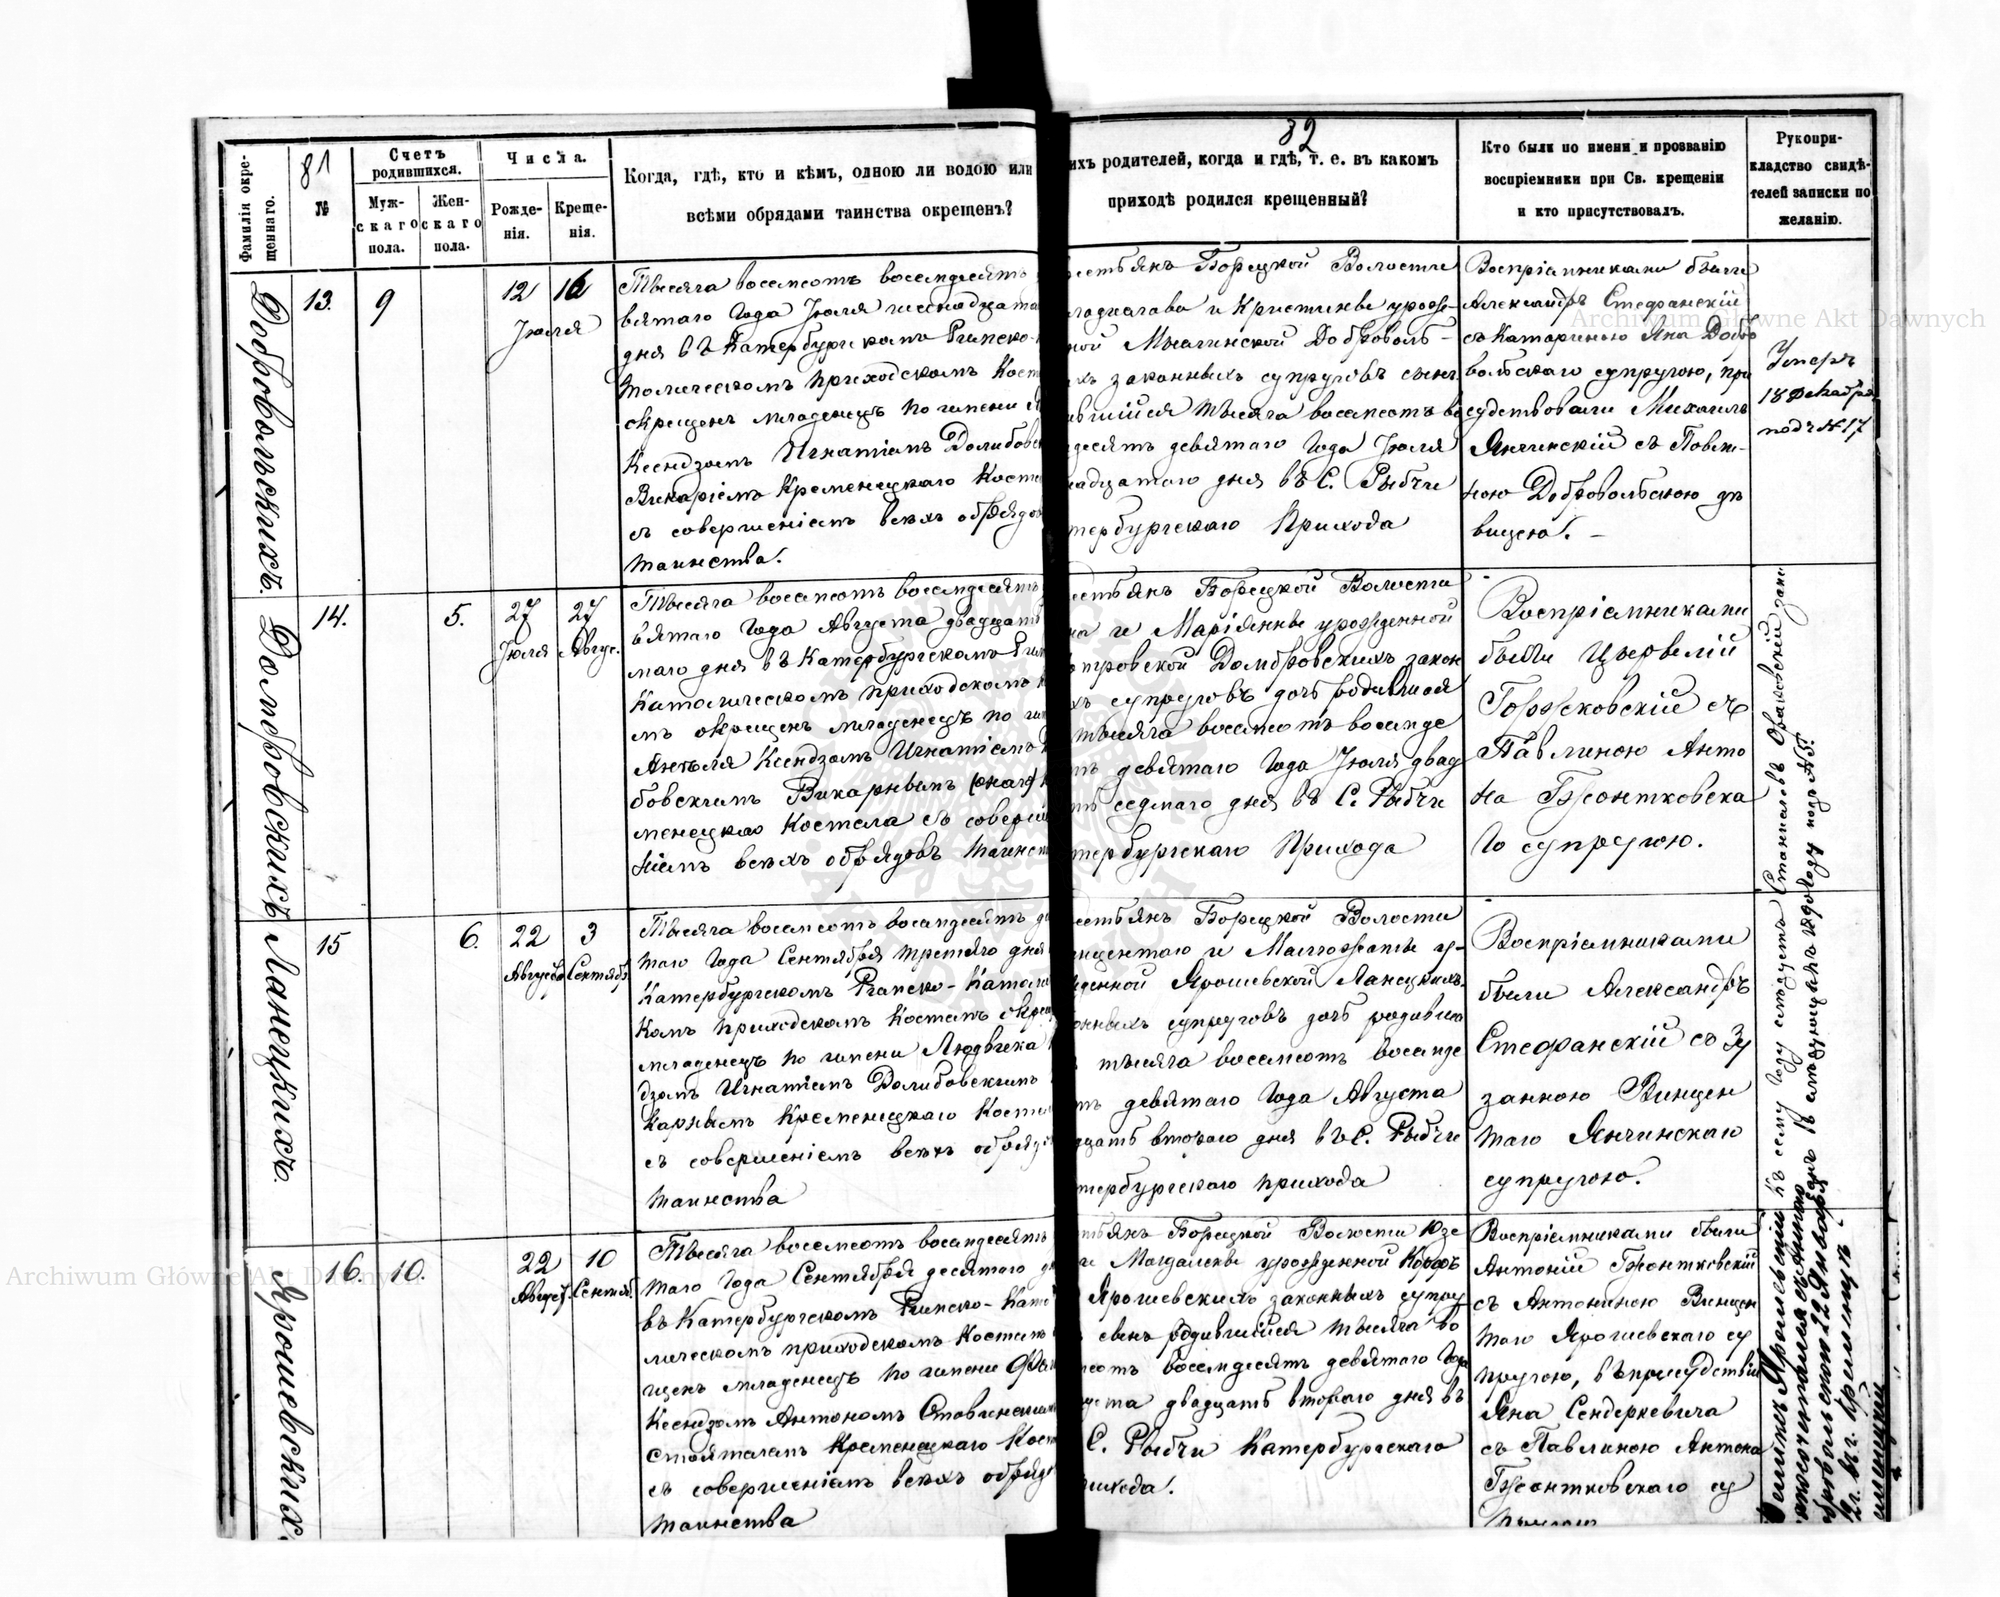 81
82
Фамилія окре-
щеннаго.
№
Счетъ
родившихся.
Муж-
скаго
пола.
Жен-
скаго
пола.
Числа.
Рожде-
нія.
Креще-
нія.
Когда, гдѣ, кто и кѣмъ, одною ли водою или
всѣми обрядами таинства окрещенъ?
ихъ родителей, когда и гдѣ, т. е. въ какомъ
приходѣ родился крещенный?
Кто были по имени и прозванію
воспріемники при Св. крещеніи
и кто присутствовалъ.
Рукопри-
кладство свидѣ-
телей записки по
желанію.
Добровольскихъ.
13.
9
12
16
Іюля
Тысяча восемсотъ восемдесятъ
вятаго Года Іюля шеснадцата
дня въ Катербургскомъ Римско-
толическомъ приходскомъ Кост
окрещенъ младенецъ по имени
Ксендзомъ Игнатіемъ Долибовск
Викаріемъ Кременецкаго Косте
съ совершеніемъ всѣхъ обрядо
таинства.
рестьянъ Борецкой Волости
и Кристины урож-
ной Мылинской Доброволь-
хъ законныхъ супруговъ сынъ
вшійся тысяча восемсотъ во
десятъ девятаго Года Іюля
надцатого дня въ С. Рыбчи
тербургскаго Прихода
Воспріемниками были
Александръ Стефанскій
съ Катариною Яна Добро
вольскаго супругою, при
судствовали Михаилъ
Янчинскій съ
ною Добровольскою дѣ
вицею.
Умеръ
18 Декабря
подъ N 17
Домбровскихъ
14.
5.
27
27
Іюля
Авгус.
Тысяча восемсотъ восемдесятъ
вятаго Года Августа двадцать
маго дня въ Катербургскомъ Рим
Католическомъ приходскомъ К
мъ окрещенъ младенецъ по им
Ангеля Ксендзомъ Игнатіемъ
бовскимъ Викарнымъ
менецкаго Костела съ соверше
ніемъ всѣхъ обрядовъ таинст
рестьянъ Борецкой Волости
на и Маріянны урожденной
тровской Домбровскихъ закон
хъ супруговъ дочь родившая
тысяча восемсотъ восемде
тъ девятаго Года Іюля двад
ть седмаго дня въ С. Рыбчи
тербургскаго Прихода
Воспріемниками
были Цырвелій
Горжковскій съ
Павлиною Анто
на Бржонтковска
го супругою.
Ланецкихъ.
15
6.
22
3
Августа
Сентяб.
Тысяча восемсотъ восемдесятъ де
таго Года Сентября третяго дня
Катербургскомъ Римско-Католи
комъ приходскомъ Костелѣ окре
младенецъ по имени Людвика
дзомъ Игнатіемъ Долибовскимъ
карнымъ Кременецкаго Косте
съ совершеніемъ всѣхъ обрядо
таинства
рестьянъ Борецкой Волости
инцентаго и Малгожаты у-
жденной Ярошевской Ланецкихъ
онныхъ супруговъ дочь родивша
тысяча восемсотъ восемде
тъ девятаго Года Августа
дцать втораго дня въ С. Рыбчи
тербургскаго прихода
Воспріемниками
были Александръ
Стефанскій съ Зу
занною Винцен
таго Янчинскаго
супругою.
Ярошевскихъ
16.
10.
22
10
Авгус.
Сентяб.
Тысяча восемсотъ восемдесятъ
таго Года Сентября десятого д
въ Катербургскомъ Римско-Като
лическомъ приходскомъ Костелѣ
щенъ младенецъ по имени
Ксендзомъ Антономъ
стоятелемъ Кременецкаго Кост
съ совершеніемъ всѣхъ обрядо
таинства
тьянъ Борецкой Волости Юзе
и Магдалены урожденной
Ярошевскихъ законныхъ супру
сынъ родившійся тысяча во
мсотъ восемдесятъ девятаго Года
уста двадцать втораго дня въ
С. Рыбчи Катербургскаго
рихода.
Воспріемниками были
Антоній Бржонтковскій
съ Антониною Винцен
таго Ярошевскаго су
пругою, въ присудствіи
Яна Сендеркевича
съ Павлиною Антона
Бржонтковскаго су
пругою
Archiwum Główne Akt Dawnych
Archiwum Główne Akt Dawnych